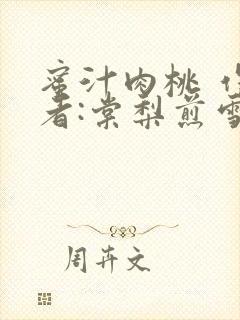 蜜汁肉桃
者:棠梨煎雪
周卉文